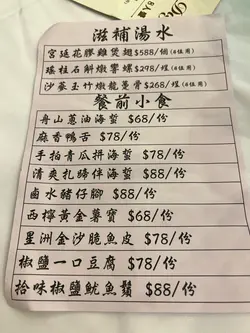 滋補湯水
宮廷花膠雞煲翅$588/個(6位用)
瑤柱石斛燉響螺$298/煱(6位用)
沙蔘玉竹燉龍骨$268/煱(6位用)
餐前小食
舟山蔥油海蜇 $68/份
麻香鴨舌 $78/份
手拍青瓜拼海蜇 $78/份
清爽扎蹄伴海蜇 $88/份
鹵水豬仔腳 $88/份
西檸黃金薯寶 $68/份
星洲金沙脆魚皮 $78/份
椒鹽一口豆腐 $78/份
拾味椒鹽魷魚鬚 $88/份